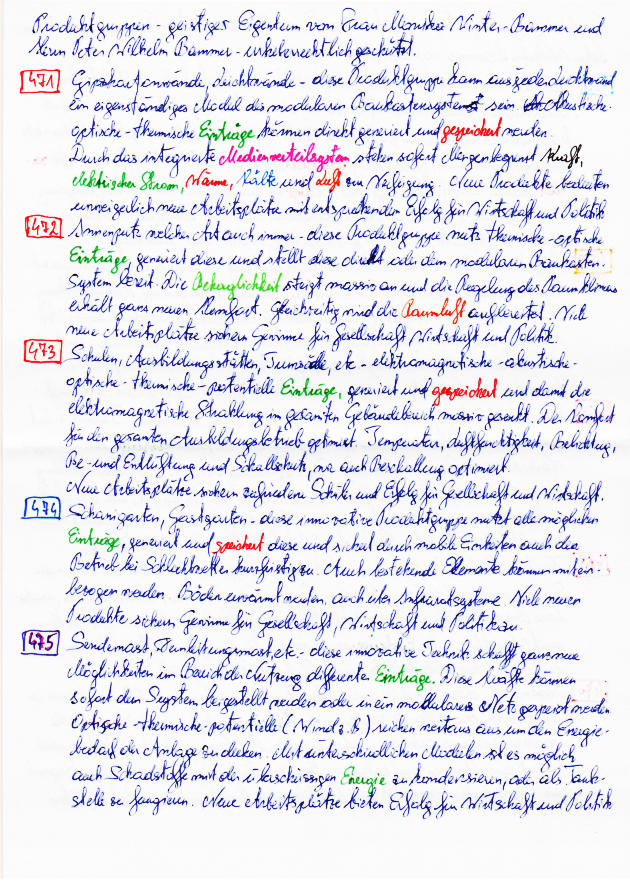 Produktgruppen - geistiges Eigentum von Frau Monika Winter-Brammer und
Herrn Peter Wilhelm Brammer - urheberrechtlich geschützt.
471 Gipskartonwände, Leichtwände - diese Produktgruppe kann aus jeder Leichtwand
ein eigenständiges Modul des modularen Baukastensystems sein Akustische-
optische-thermische Einträge können direkt generiert und gespeichert werden.
Durch das integrierte Medienverteilsystem stehen sofort Mengen begrenzt Kraft,
elektrischer Strom, Wärme, Kälte und Luft zur Verfügung. Neue Produkte bedeuten
unweigerlich neue Arbeitsplätze mit entsprechendem Erfolg für Wirtschaft und Politik
472 Innenputz welcher Art auch immer - diese Produktgruppe nutzt thermische-optische
Einträge, generiert diese und stellt diese direkt oder dem modularen Baukasten-
System bereit. Die Behaglichkeit steigt massiv an und die Regelung des Raumklimas
erhält ganz neuen Komfort. Gleichzeitig wird die Raumluft aufbereitet. Viele
neue Arbeitsplätze sichern Gewinne für Gesellschaft Wirtschaft und Politik.
473 Schulen, Ausbildungsstätten, Turnsäle, etc - elektromagnetische-akustische-
optische-thermische-potentielle Einträge, generiert und gespeichert und damit die
elektromagnetische Strahlung im gesamten Gebäudebereich massiv gesenkt. Der Komfort
für den gesamten Ausbildungsbetrieb optimiert. Temperatur, Luftfeuchtigkeit, Beleuchtung,
Be- und Entlüftung und Schallschutz, wie auch Beschallung optimiert.
Neue Arbeitsplätze sichern zufriedene Schüler und Erfolg für Gesellschaft und Wirtschaft.
474 Schanigarten, Gastgarten - diese innovative Produktgruppe nutzt alle möglichen
Einträge, generiert und speichert diese und sichert durch mobile Einheiten auch den
Betrieb bei Schlechtwetter kurzfristig zu. Auch bestehende Elemente können mitein-
bezogen werden. Böden erwärmt werden, auch über Infrarotsysteme. Viele neuen
Produkte sichern Gewinne für Gesellschaft, Wirtschaft und Politik zu.
475 Sendemast, Fernleitungsmast, etc - diese innovative Technik schafft ganz neue
Möglichkeiten im Bereich der Nutzung differenter Einträge. Diese Kräfte können
sofort dem System beigestellt werden oder in ein modulares Netz gespeist werden.
Optische-thermische-potentielle (Wind z.B) reichen weitaus aus um den Energie-
bedarf der Anlage zu decken. Mit unterschiedlichen Modulen ist es möglich
auch Schadstoffe mit der überschüssigen Energie zu kondensieren, oder als Tank-
stelle zu fungieren. Neue Arbeitsplätze bieten Erfolg für Wirtschaft und Politik